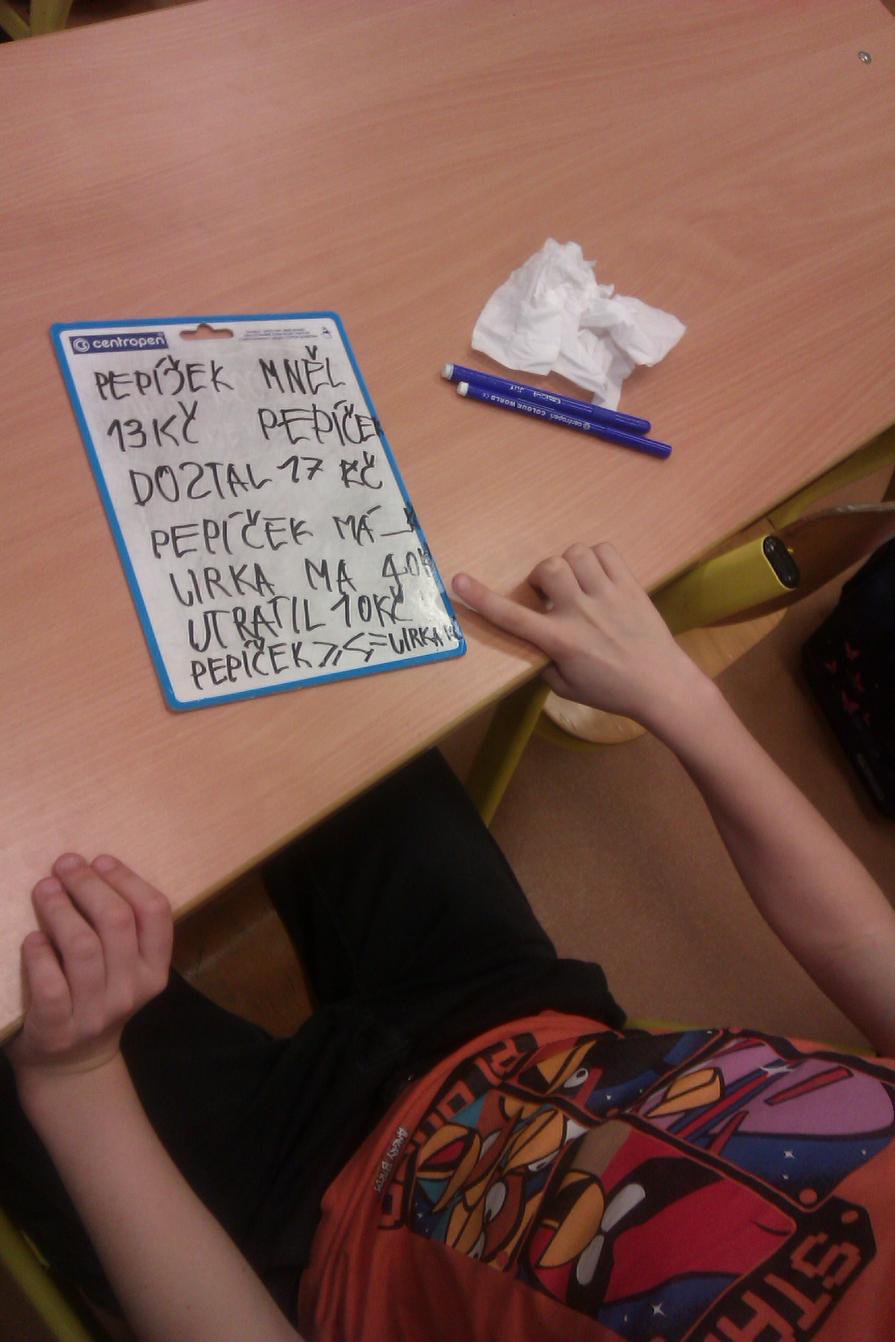 centropen
PEPÍČEK MNĚL
13KČ PEPÍČEK
DOSTAL 17 KČ
PEPÍČEK MÁ_K
URKA MA 40K
UTRATIL 10KČ
PEPÍČEK >,<,= URKA
centropen COLOUR WORLD
ANGRY BIRDS
STA